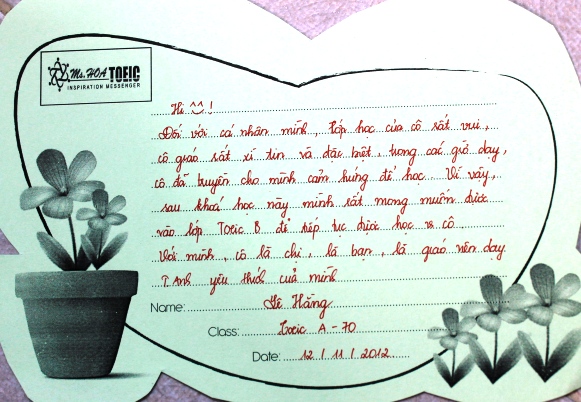 Ms. HOA TOEIC
INSPIRATION MESSENGER
Hi ^^!
Đối với cá nhân mình, lớp học của cô rất vui,
cô giáo rất xì tin và đặc biệt, trong các giờ dạy,
cô đã truyền cho mình cảm hứng để học. Vì vậy,
sau khoá học này mình rất mong muốn được
vào lớp Toeic B để tiếp tục được học vs cô.
Với mình, cô là chị, là bạn, là giáo viên dạy
T. Anh yêu thích của mình
Name: Lê Hằng
Class: Toeic A-70
Date: 12 / 11 / 2012